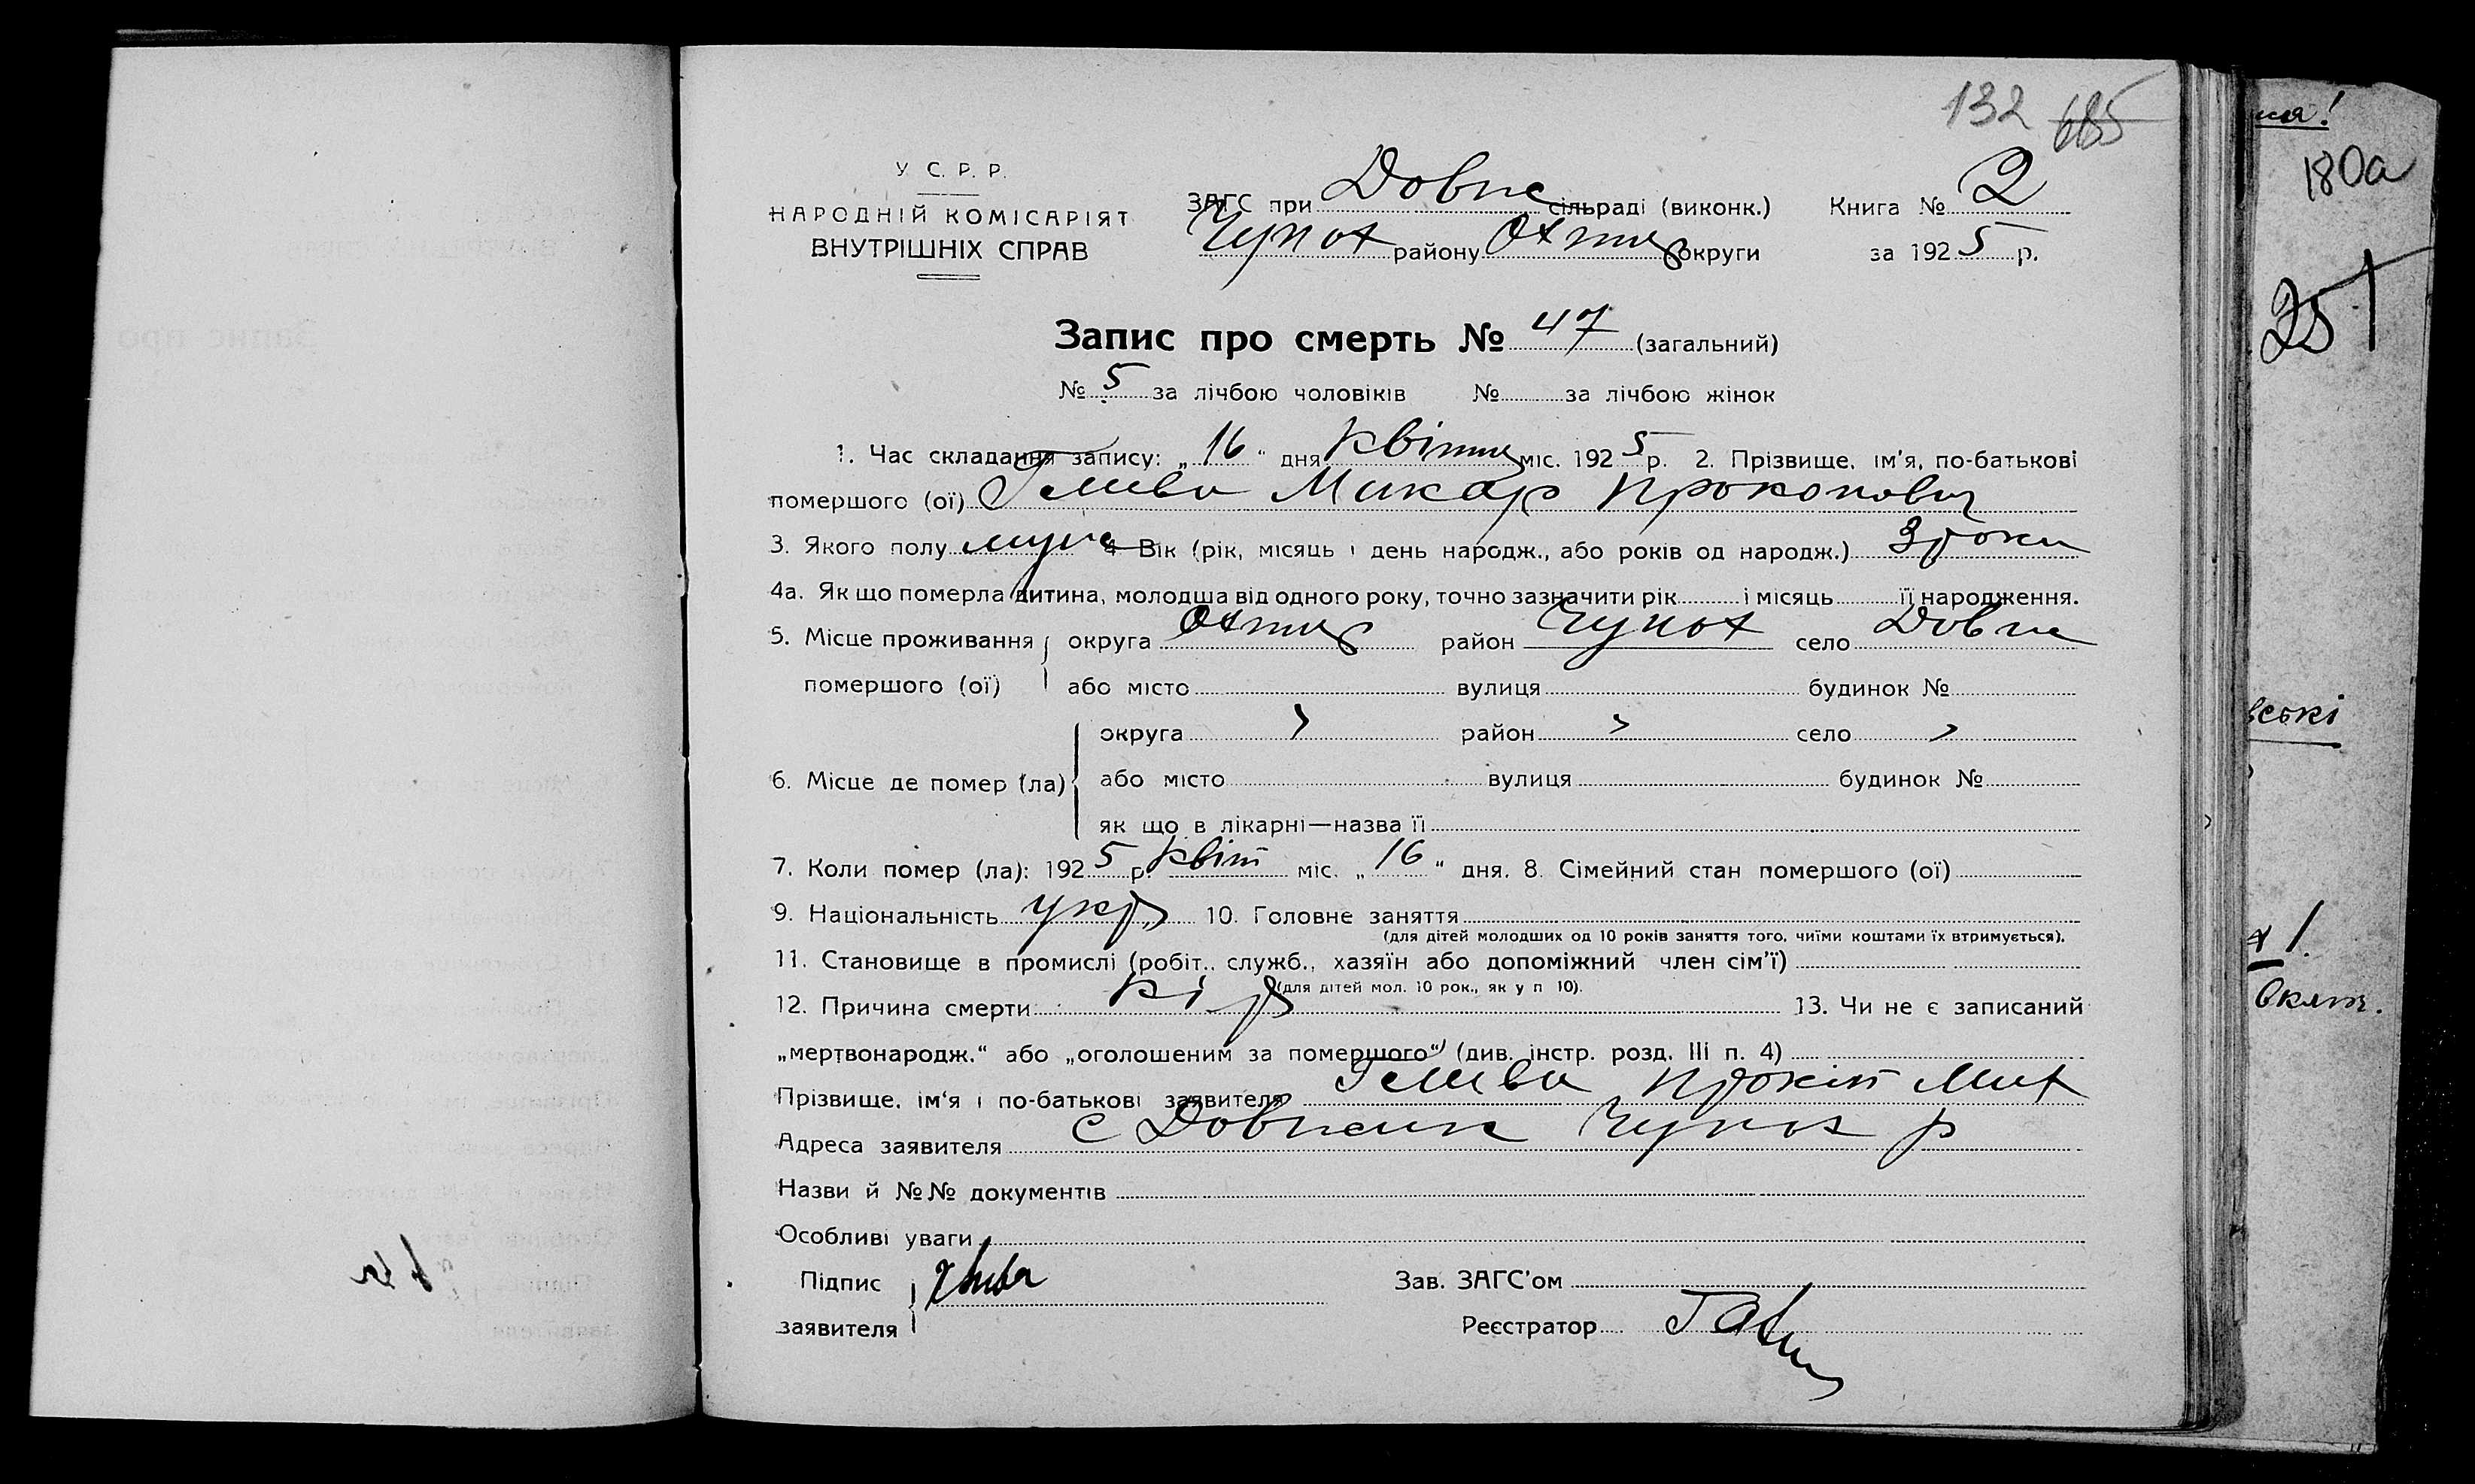 132 685
У С. Р. Р.
НАРОДНІЙ КОМІСАРІЯТ
ВНУТРІШНІХ СПРАВ
ЗАГС при Довже сільраді (виконк.) Книга № 2
Чупах району Охтир округи за 1925 р.
Запис про смерть № 47 (загальний)
№ 5 за лічбою чоловіків № за лічбою жінок
1. Час складання запису: „16“ дня квітня міс. 1925 р. 2. Прізвище, ім'я, по-батькові
помершого (ої) Макар Прокопович
3. Якого полу муж 4 Вік (рік, місяць і день народж., або років од народж.) 3 роки
4а. Як що померла дитина, молодша від одного року, точно зазначити рік і місяць її народження.
5. Місце проживання округа Охтир район Чупах село
помершого (ої) або місто вулиця будинок №
округа » район » село »
6. Місце де помер (ла) або місто вулиця будинок №
як що в лікарні—назва її
7. Коли помер (ла): 1925 р. квіт міс. „16“ дня. 8. Сімейний стан помершого (ої)
9. Національність укр 10. Головне заняття
(для дітей молодших од 10 років заняття того, чиїми коштами їх втримується).
11. Становище в промислі (робіт., служб., хазяїн або допоміжний член сім'ї)
(для дітей мол. 10 рок., як у п 10).
12. Причина смерти кір 13. Чи не є записаний
„мертвонародж.“ або „оголошеним за помершого“ (див. інстр. розд. III п. 4)
Прізвище, ім'я і по-батькові заявителя Прокіп Мих
Адреса заявителя с Чупах р
Назви й №№ документів
Особливі уваги
Підпис Зав. ЗАГС'ом
заявителя Реєстратор
180а
251